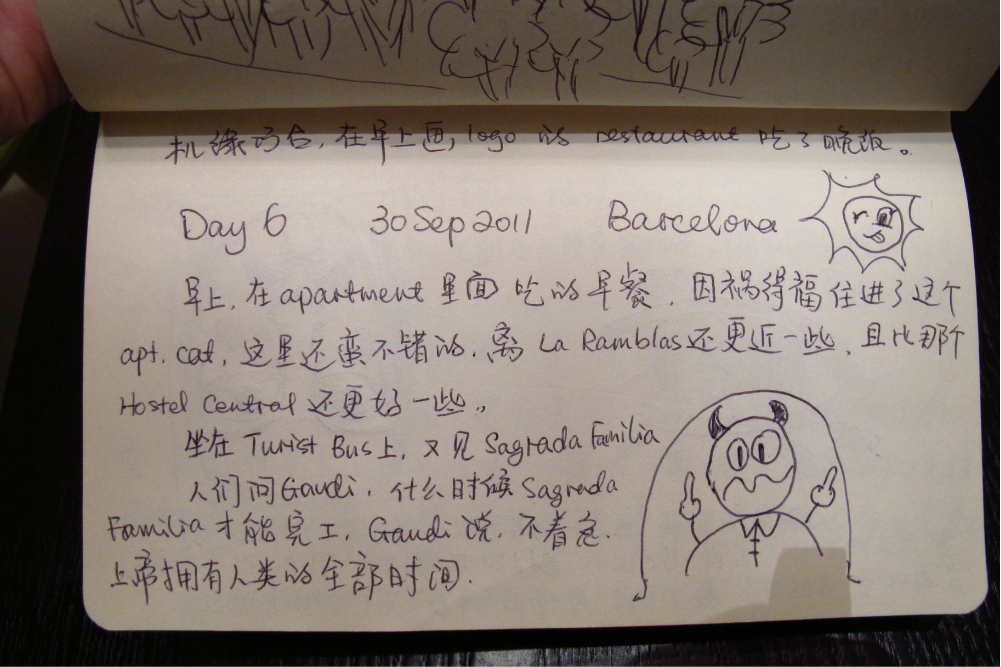 机缘巧合,在早上画logo的restaurant吃了晚饭。
Day 6 30 Sep 2011 Barcelona
早上,在apartment里面吃的早餐,因祸得福住进了这个
apt. cat,这里还蛮不错的,离La Ramblas还更近一些,且比那个
Hostel Central还更好一些。
坐在Turist Bus上,又见Sagrada Familia
人们问Gaudi,什么时候Sagrada
Familia才能完工,Gaudi说,不着急.
上帝拥有人类的全部时间.